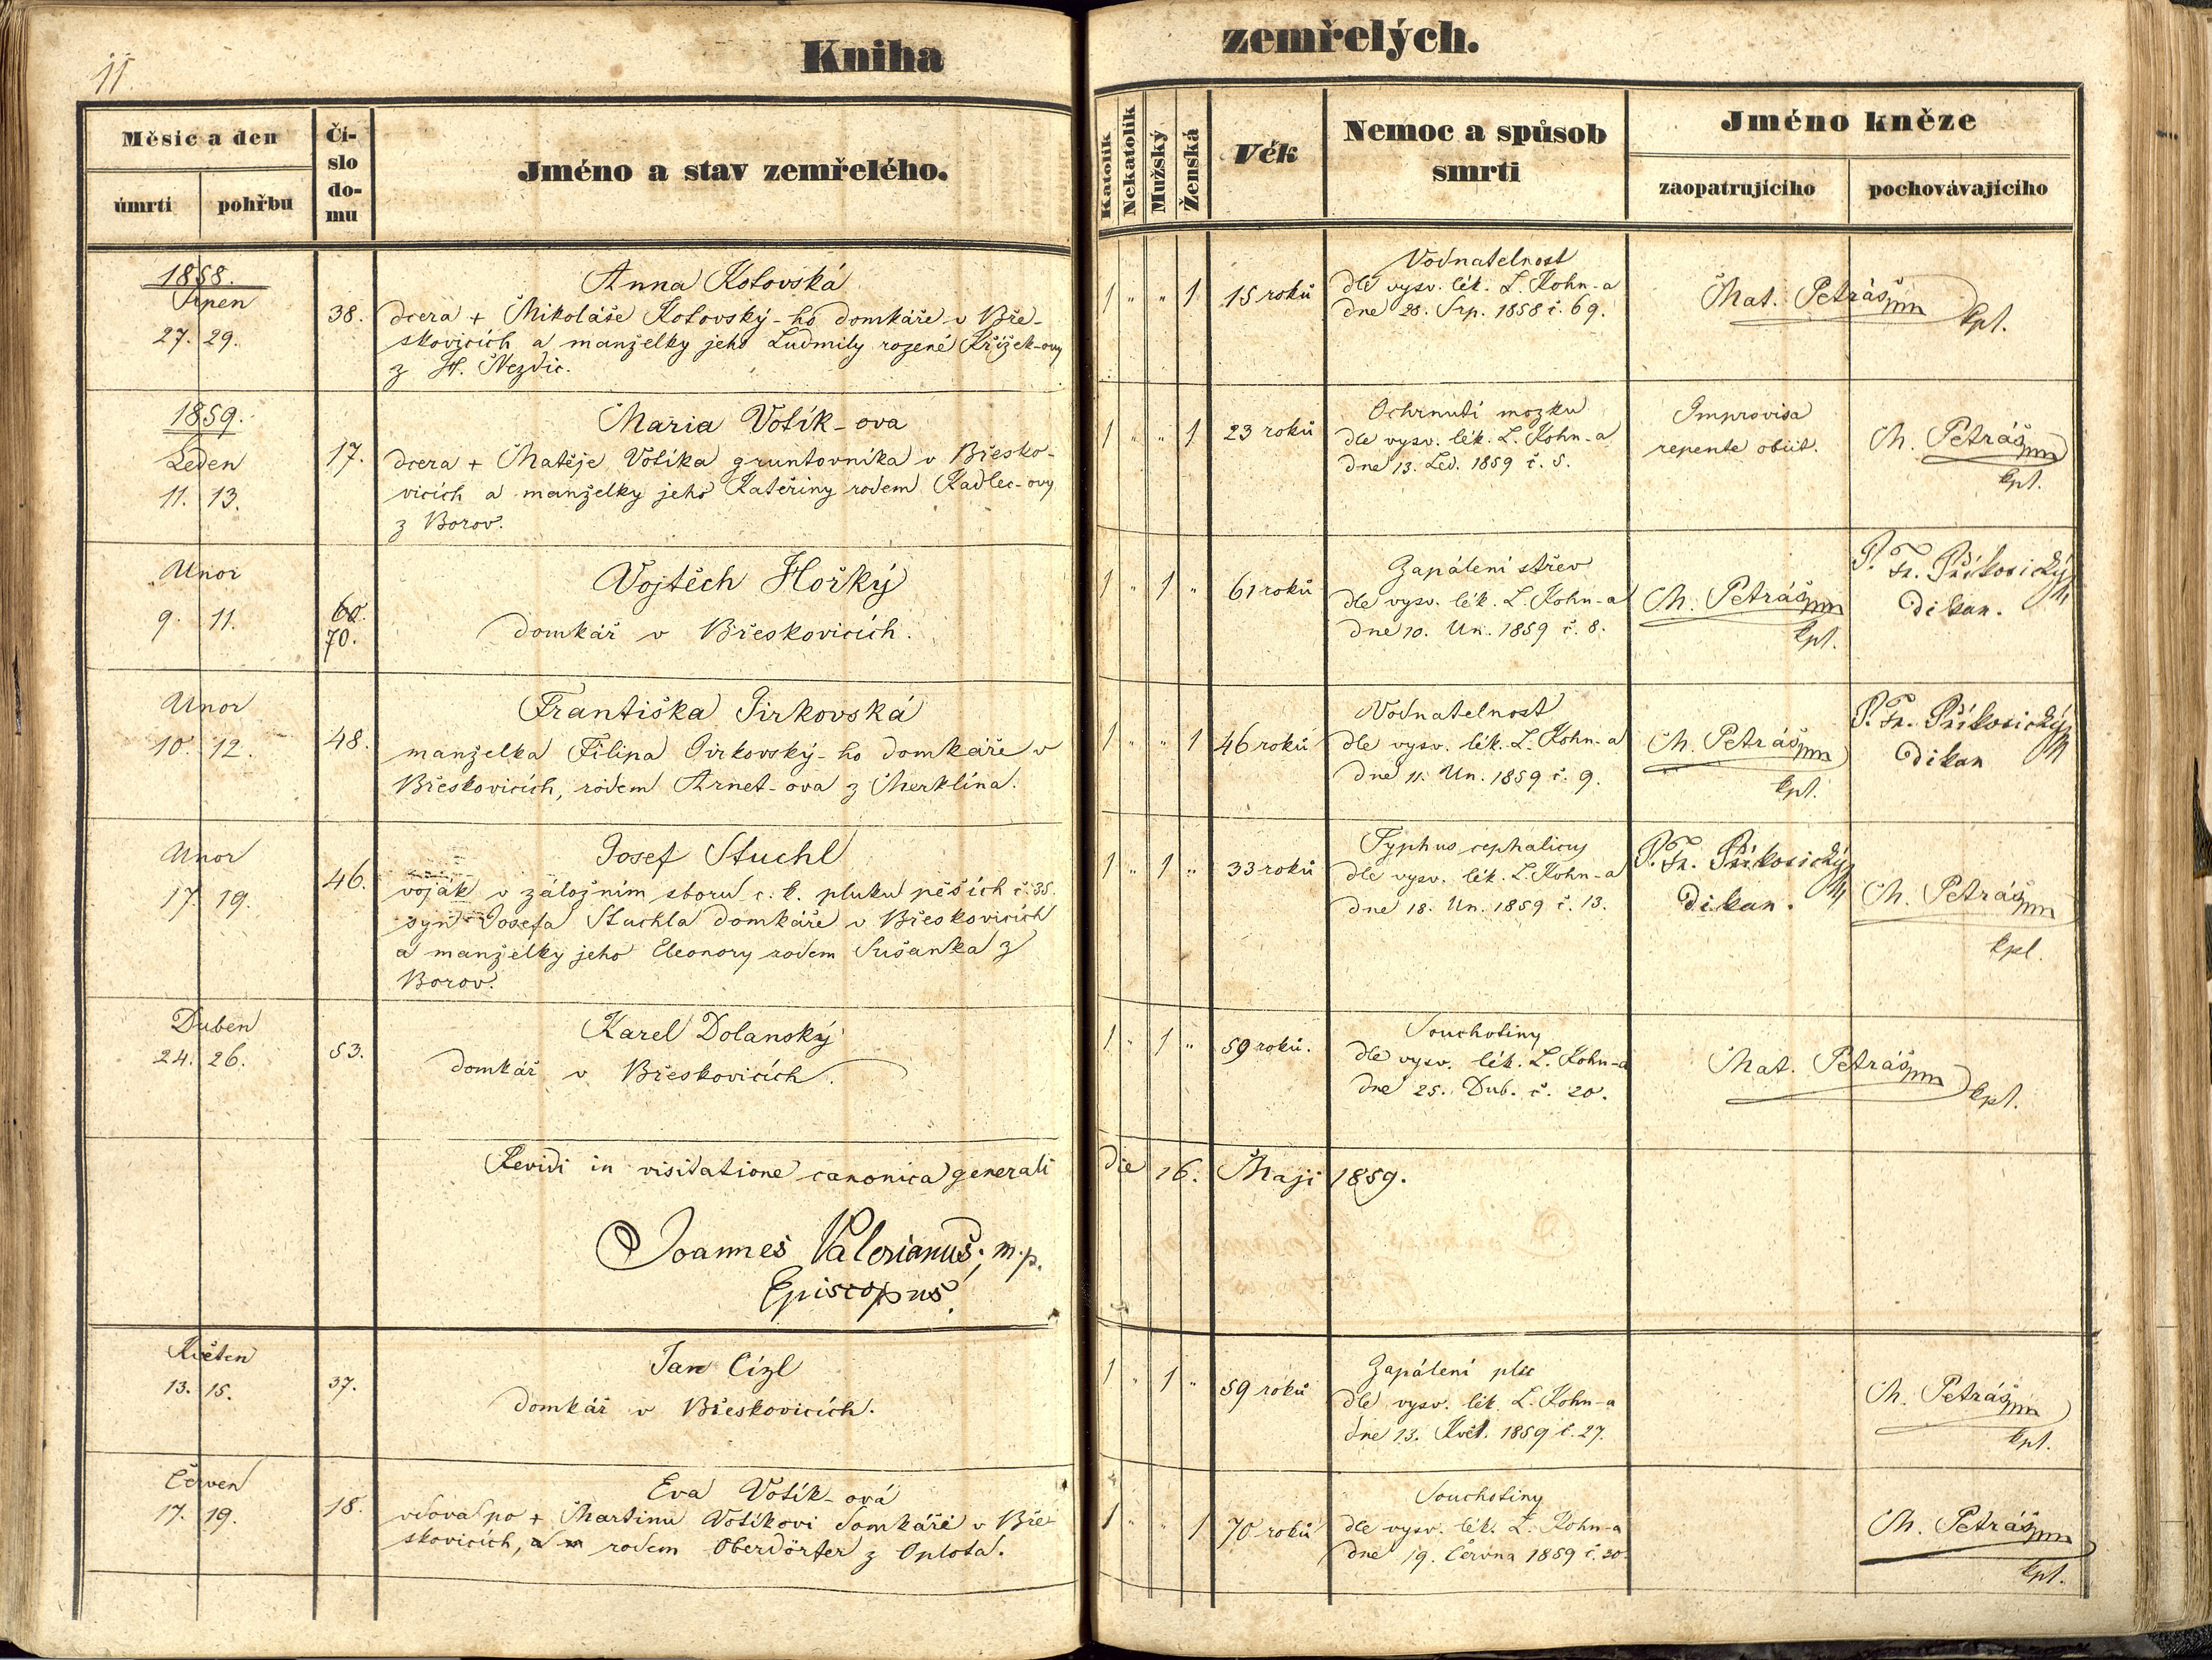 11.
Kniha zemřelých.
Měsíc a den
úmrtí pohřbu
Čí-
slo
do-
mu
Jméno a stav zemřelého.
Katolík
Nekatolík
Mužský
Ženská
Věk
Nemoc a spůsob
smrti
Jméno kněze
zaopatrujícího pochovávajícího
1858.
Srpen
27. 29.
38.
Anna Kotovská
dcera + Mikoláše Kotovský-ho domkáře v Bře-
skovicích a manželky jeho Ludmily rozené Křížek-ovy
z H. Nezdic.
1 " " 1
15 roků
Vodnatelnost
dle vysv. lék. L. Kohn-a
dne 28. Srp. 1858 č. 69.
Mat. Petráš mn
kpl.
1859.
Leden
11. 13.
17.
Maria Votík-ova
dcera + Matěje Votíka gruntovníka v Břesko-
vicích a manželky jeho Kateřiny rodem Kadlec-ovy
z Borov.
1 " " 1
23 roků
Ochrnutí mozku
dle vysv. lék. L. Kohn-a
dne 13. Led. 1859 č. 5.
Improvisa
repente obiit.
M. Petráš mn
kpl.
Unor
9. 11.
60.
70.
Vojtěch Hořký
domkář v Břeskovicích.
1 " 1 "
61 roků
Zapálení střev
dle vysv. lék. L. Kohn-a
dne 10. Un. 1859 č. 8.
M. Petráš mn
kpl.
P. Fr. Přikosický
Děkan.
Unor
10. 12.
48.
Františka Jirkovská
manželka Filipa Jirkovský-ho domkáře v
Břeskovicích, rodem Arnet-ova z Merklína.
1 " " 1
46 roků
Vodnatelnost
dle vysv. lék. L. Kohn-a
dne 11. Un. 1859 č. 9.
M. Petráš mn
kpl.
P. Fr. Přikosický
Děkan
Unor
17. 19.
46.
Josef Stuchl
voják v záložním sboru c. k. pluku pěších č. 35.
syn Josefa Stuchla domkáře v Břeskovicích
a manželky jeho Eleonory rodem Sušanka z
Borov.
1 " 1 "
33 roků
Typhus cephalicus
dle vysv. lék. L. Kohn-a
dne 18. Un. 1859 č. 13.
P. Fr. Přikosický
Děkan.
M. Petráš mn
kpl.
Duben
24. 26.
53.
Karel Dolanský
domkář v Břeskovicích.
1 " 1 "
59 roků.
Souchotiny
dle vysv. lék. L. Kohn-a
dne 25. Dub. č. 20.
Mat. Petráš mn
kpl.
Revidi in visitatione canonica generali die 16. Maji 1859.
Joannes Valerianus, m.p.
Episcopus.
Květen
13. 15.
37.
Jan Cízl
domkář v Břeskovicích.
1 " 1 "
59 roků
Zapálení plic
dle vysv. lék. L. Kohn-a
dne 13. Květ. 1859 č. 27.
M. Petráš mn
kpl.
Červen
17. 19.
18.
Eva Votík-ová
vdova po + Martinu Votíkovi domkáři v Bře
skovicích, rodem Oberdörfer z Oplota.
1 " " 1
70 roků
Souchotiny
dle vysv. lék. L. Kohn-a
dne 19. Června 1859 č. 30.
M. Petráš mn
kpl.